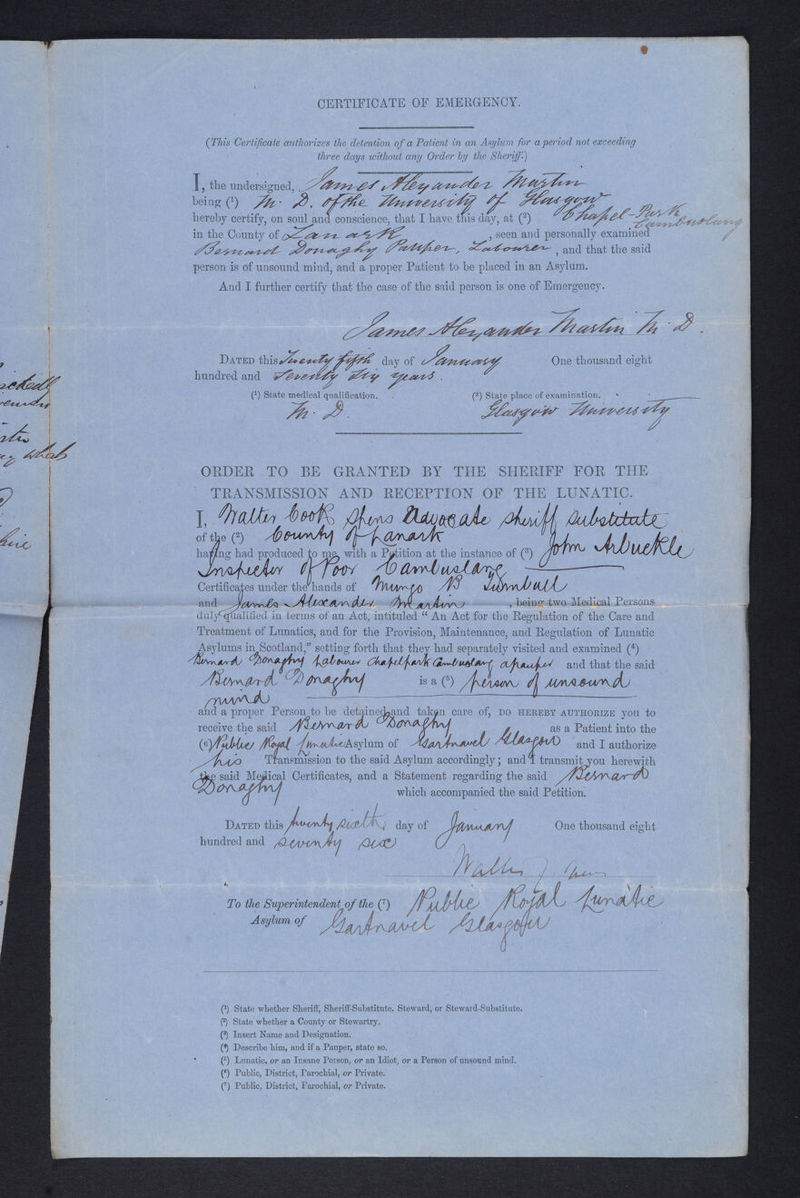 CERTIFICATE OF EMERGENCY.
(This Certificate authorizes the detention of a Patient in an Asylum for a period not exceeding
three days without any Order by the Sheriff.)
I, the undersigned, James Alexander Martin
being (1) M. D. of the University of Glasgow
hereby certify, on soul and conscience, that I have this day, at (2) Chapel-Park Cambuslang
in the County of Lanark , seen and personally examined
Bernard Donaghy Pauper, Labourer , and that the said
person is of unsound mind, and a proper Patient to be placed in an Asylum.
And I further certify that the case of the said person is one of Emergency.
James Alexander Martin M. D.
DATED this Twenty fifth day of January One thousand eight
hundred and Seventy Six years.
(1) State medical qualification. (2) State place of examination.
M. D. Glasgow University
ORDER TO BE GRANTED BY THE SHERIFF FOR THE
TRANSMISSION AND RECEPTION OF THE LUNATIC.
I, Walter Cook Spens Advocate Sheriff Substitute
of the (2) County of Lanark
having had produced to me, with a Petition at the instance of (3) John Arbuckle
Inspector of Poor Cambuslang
Certificates under the hands of Mungo B Turnbull
and James Alexander Martin , being two Medical Persons
duly qualified in terms of an Act, intituled "An Act for the Regulation of the Care and
Treatment of Lunatics, and for the Provision, Maintenance, and Regulation of Lunatic
Asylums in Scotland," setting forth that they had separately visited and examined (4)
Bernard Donaghy Labourer Chapelpark Cambuslang a pauper and that the said
Bernard Donaghy is a (5) person of unsound
mind
and a proper Person to be detained and taken care of, DO HEREBY AUTHORIZE you to
receive the said Bernard Donaghy as a Patient into the
(6) Public Royal Lunatic Asylum of Gartnavel Glasgow and I authorize
his Transmission to the said Asylum accordingly; and I transmit you herewith
the said Medical Certificates, and a Statement regarding the said Bernard
Donaghy which accompanied the said Petition.
DATED this twenty sixth day of January One thousand eight
hundred and seventy six
To the Superintendent of the (7) Public Royal Lunatic
Asylum of Gartnavel Glasgow
(1) State whether Sheriff, Sheriff-Substitute, Steward, or Steward-Substitute.
(2) State whether a County or Stewartry.
(3) Insert Name and Designation.
(4) Describe him, and if a Pauper, state so.
(5) Lunatic, or an Insane Person, or an Idiot, or a Person of unsound mind.
(6) Public, District, Parochial, or Private.
(7) Public, District, Parochial, or Private.